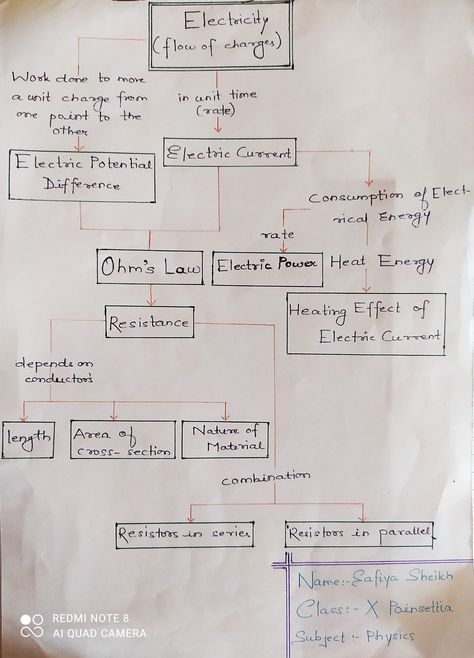 Electricity
(flow of charges)
Work done to move
a unit charge from
one point to the
other
in unit time
(rate)
Electric Potential
Difference
Electric Current
Consumption of Elect-
rical Energy
rate
Ohm's Law
Electric Power
Heat Energy
Resistance
Heating Effect of
Electric Current
depends on
conductor's
length
Area of
cross-section
Nature of
Material
combination
Resistors in series
Resistors in parallel
Name:- Safiya Sheikh
Class:- X Painsettia
Subject:- Physics
REDMI NOTE 8
AI QUAD CAMERA